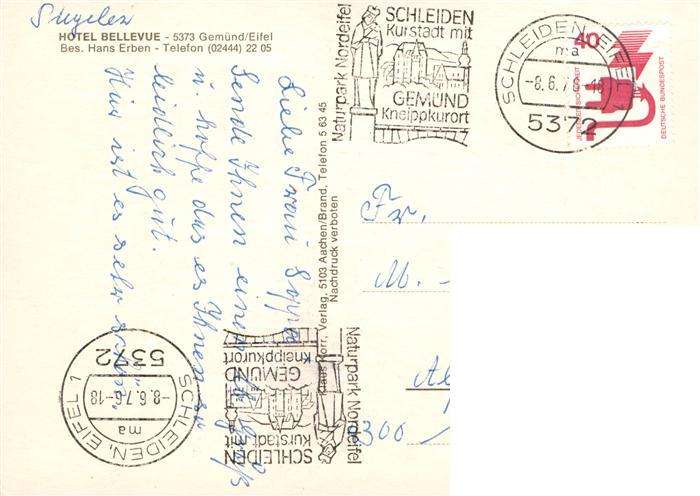 Sugelex
HOTEL BELLEVUE - 5373 Gemünd/Eifel
Bes. Hans Erben - Telefon (02444) 22 05
Liebe Frau
Sende Ihnen einen Gruß
u. hoffe das es Ihnen
leidlich gut.
Hier ist es sehr schön,
Verlag, 5103 Aachen/Brand, Telefon 5 63 45
Nachdruck verboten
Naturpark Nordeifel
SCHLEIDEN
Kurstadt mit
GEMÜND
Kneippkurort
SCHLEIDEN, EIFEL 1
ma
-8.6.76-18
5372
40
JEDERZEIT SICHERHEIT
DEUTSCHE BUNDESPOST
Fr.
M.
300
Naturpark Nordeifel
SCHLEIDEN
Kurstadt mit
GEMÜND
Kneippkurort
SCHLEIDEN, EIFEL 1
ma
-8.6.76-18
5372